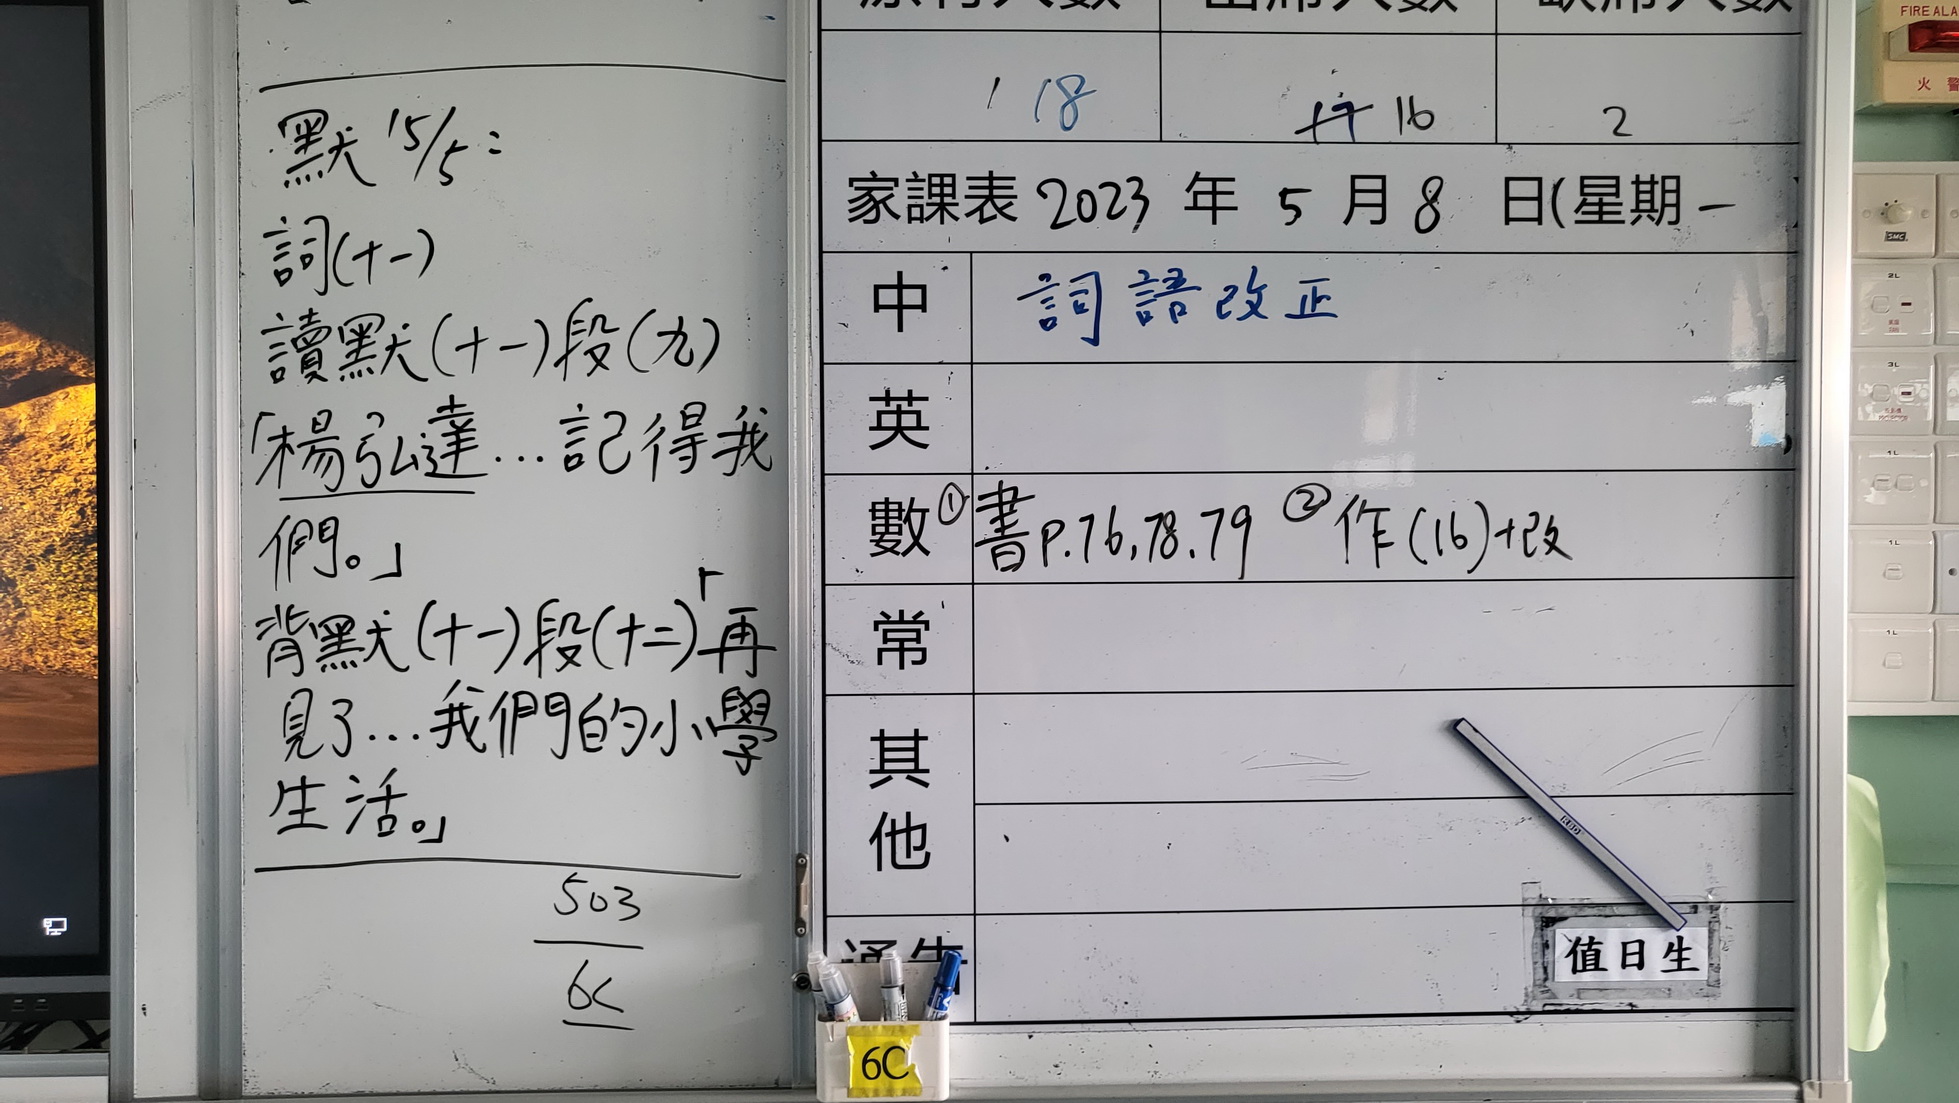 默 15/5:
詞(十一)
讀默(十一)段(九)
「楊弘達...記得我
們。」
背默(十一)段(十二)「再
見了...我們的小學
生活。」
503
6C
原有人數 出席人數 缺席人數
18 17 16 2
家課表 2023 年 5 月 8 日(星期一
中 詞語改正
英
數 ①書p.76,78.79 ②作(16)+改
常
其他
通告
值日生
6C
FIRE ALA
火警
SMC
2L
3L
1L
1L
1L